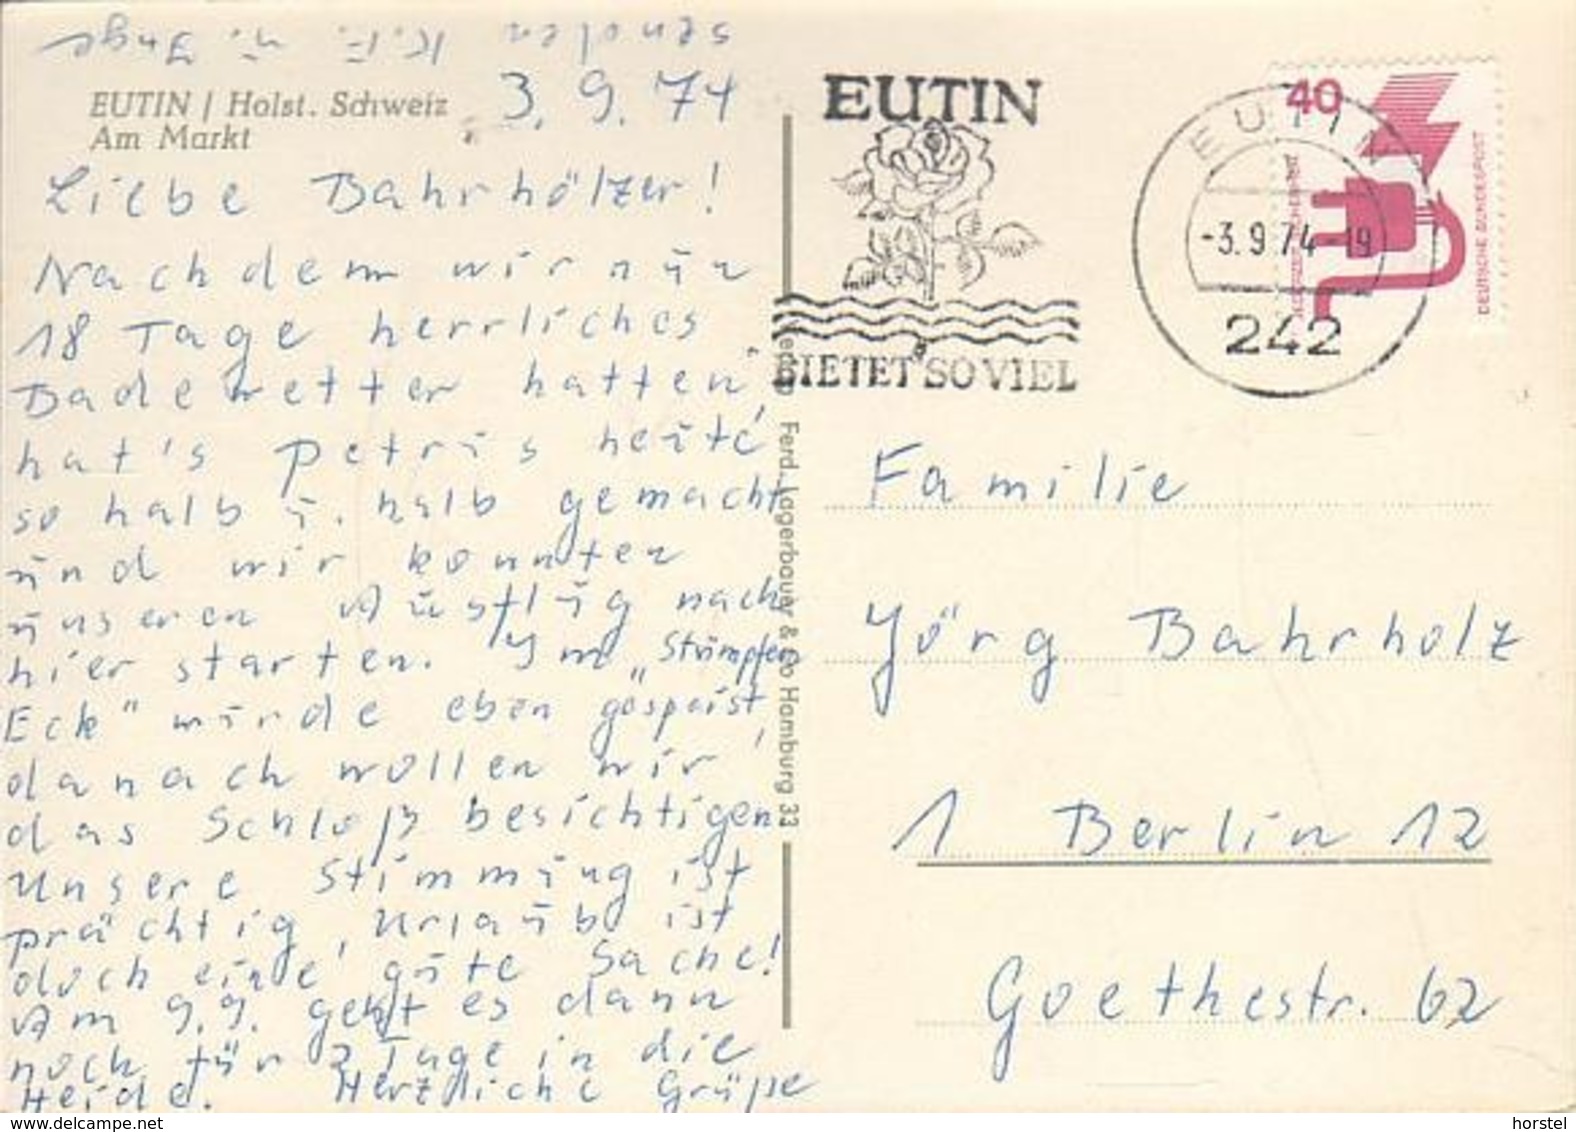 EUTIN / Holst. Schweiz
Am Markt
3. 9. 74
Liebe Bahrhölzer!
Nachdem wir nun
18 Tage herrliches
Badewetter hatten,
hat's Petrus heute
so halb u. halb gemacht
und wir konnten
unseren Ausflug nach
hier starten. Im „Stümpfer
Eck" wurde eben gespeist,
danach wollen wir
das Schloß besichtigen.
Unsere Stimmung ist
prächtig, Urlaub ist
doch eine gute Sache!
Am 9.9. geht es dann
noch für 2 Tage in die
Heide. Herzliche Grüße
senden K.F. u. Inge
Verlag Ferd. Lagerbauer & Co Hamburg 33
EUTIN
BIETET SO VIEL
EUTIN
-3.9.74-19
242
40
JEDERZEIT SICHERHEIT
DEUTSCHE BUNDESPOST
Familie
Jörg Bahrholz
1 Berlin 12
Goethestr. 62
www.delcampe.net
horstel